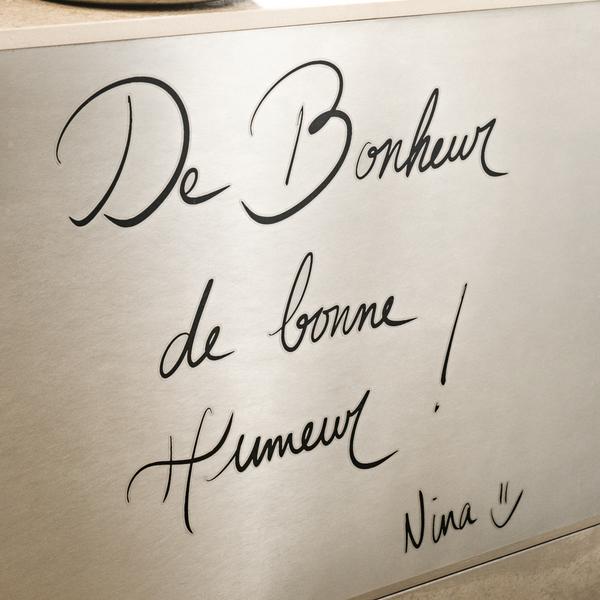 De Bonheur
de bonne
Humeur !
Nina